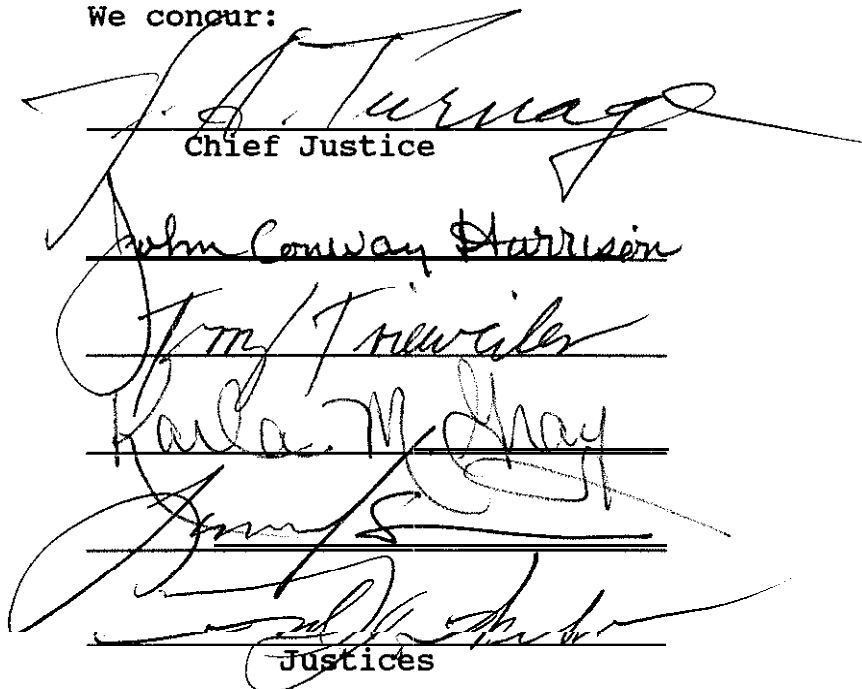 We concur:
J. A. Turnage
Chief Justice
John Conway Harrison
Terry Trieweiler
Karla M. Gray
Justices